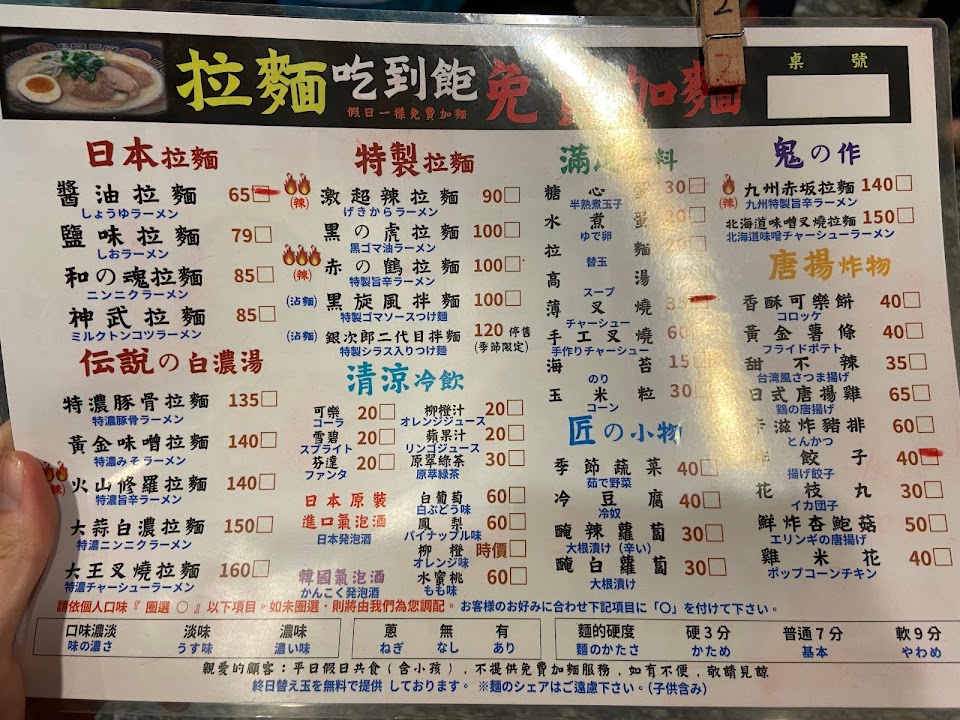 2
拉麵吃到飽 免 加麵
假日一樣免費加麵
桌 號
日本拉麵
醬油拉麵 65
しょうゆラーメン
鹽味拉麵 79
しおラーメン
和の魂拉麵 85
ニンニクラーメン
神武拉麵 85
ミルクトンコツラーメン
伝説の白濃湯
特濃豚骨拉麵 135
特濃豚骨ラーメン
黃金味噌拉麵 140
特濃みそラーメン
火山修羅拉麵 140
特濃旨辛ラーメン
大蒜白濃拉麵 150
特濃ニンニクラーメン
大王叉燒拉麵 160
特濃チャーシューラーメン
特製拉麵
(辣) 激超辣拉麵 90
げきからラーメン
黑の虎拉麵 100
黒ゴマ油ラーメン
(辣) 赤の鶴拉麵 100
特製旨辛ラーメン
(沾麵) 黑旋風拌麵 100
特製ゴマソースつけ麺
(沾麵) 銀次郎二代目拌麵 120 停售
特製シラス入りつけ麺 (季節限定)
清涼冷飲
可樂 20
コーラ
雪碧 20
スプライト
芬達 20
ファンタ
柳橙汁 20
オレンジジュース
蘋果汁 20
リンゴジュース
原萃綠茶 30
原萃緑茶
日本原裝
進口氣泡酒
日本発泡酒
白葡萄 60
白ぶどう味
鳳梨 60
パイナップル味
柳橙 時價
オレンジ味
韓國氣泡酒
かんこく発泡酒
水蜜桃 60
もも味
滿 料
糖心蛋 30
半熟煮玉子
水煮蛋 20
ゆで卵
拉麵
替玉
高湯
スープ
薄叉燒 35
チャーシュー
手工叉燒 60
手作りチャーシュー
海苔 15
のり
玉米粒 30
コーン
匠の小物
季節蔬菜 40
茹で野菜
冷豆腐 40
冷奴
醃辣蘿蔔 30
大根漬け（辛い）
醃白蘿蔔 30
大根漬け
鬼の作
(辣) 九州赤坂拉麵 140
九州特製旨辛ラーメン
北海道味噌叉燒拉麵 150
北海道味噌チャーシューラーメン
唐揚炸物
香酥可樂餅 40
コロッケ
黃金薯條 40
フライドポテト
甜不辣 35
台湾風さつま揚げ
日式唐揚雞 65
鶏の唐揚げ
滋炸豬排 60
とんかつ
餃子 40
揚げ餃子
花枝丸 30
イカ団子
鮮炸杏鮑菇 50
エリンギの唐揚げ
雞米花 40
ポップコーンチキン
請依個人口味『 圈選 ○ 』以下項目。如未圈選，則將由我們為您調配。 お客様のお好みに合わせ下記項目に「○」を付けて下さい。
口味濃淡 淡味 濃味 蔥 無 有 麵的硬度 硬3分 普通7分 軟9分
味の濃さ うす味 濃い味 ねぎ なし あり 麺のかたさ かため 基本 やわめ
親愛的顧客：平日假日共食（含小孩），不提供免費加麵服務，如有不便，敬請見諒
終日替え玉を無料で提供 しております。 ※麺のシェアはご遠慮下さい。（子供含み）